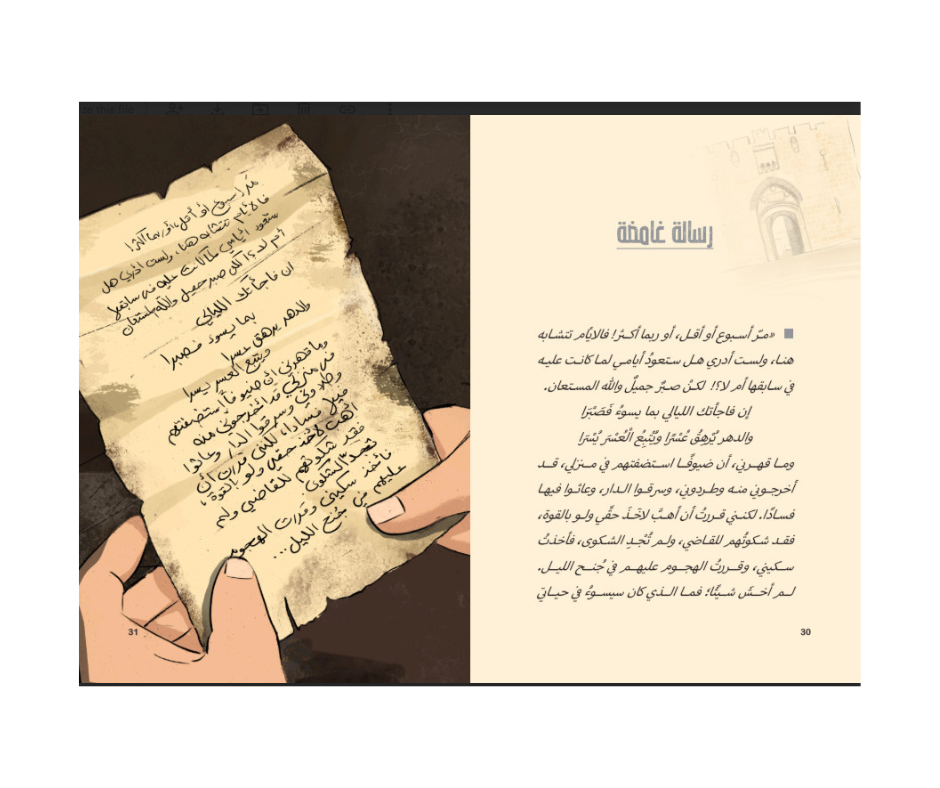 رسالة غامضة
«مرّ أسبوع أو أقل، أو ربما أكثر! فالايّام تتشابه
هنا، ولست أدري هل ستعودُ أيامي لما كانت عليه
في سابقها أم لا؟! لكنْ صبرٌ جميلٌ والله المستعان.
إن فاجأتك الليالي بما يسوءُ فَصَبْرَا
والدهر يُرْهِقُ عُسْرًا ويُتْبِعُ الْعُسْرَ يُسْرَا
وما قهرني، أن ضيوفًا استضفتهم في منزلي، قد
أخرجوني منه وطردوني، وسرقوا الدار، وعاثوا فيها
فسادًا. لكنني قررتُ أن أهبَّ لآخَذَ حقّي ولو بالقوة،
فقد شكوتُهم للقاضي، ولم تُجْدِ الشكوى، فأخذتُ
سكيني، وقررتُ الهجوم عليهم في جُنحِ الليل.
لم أخشَ شيئًا؛ فما الذي كان سيسوءُ في حياتي
30
مَرّ اسبوع أو أقل، أو ربما أكثر!
فالأيام تتشابه هنا، ولست ادري هل
ستعود أيامي لما كانت عليه في سابقها
أم لا؟! لكن صبر جميل والله المستعان
ان فاجأتك الليالي
بما يسوء فصبرا
والدهر يرهق عسرا
ويتبع العسر يسرا
وما قهرني أن ضيوفا استضفتهم
في منزلي قد أخرجوني منه
وطردوني وسرقوا الدار وعاثوا
فيها فسادا، لكنني قررت أن
أهب لآخذ حقي ولو بالقوة،
فقد شكوتهم للقاضي ولم
تجد الشكوى
فأخذت سكيني وقررت الهجوم
عليهم في جنح الليل...
31